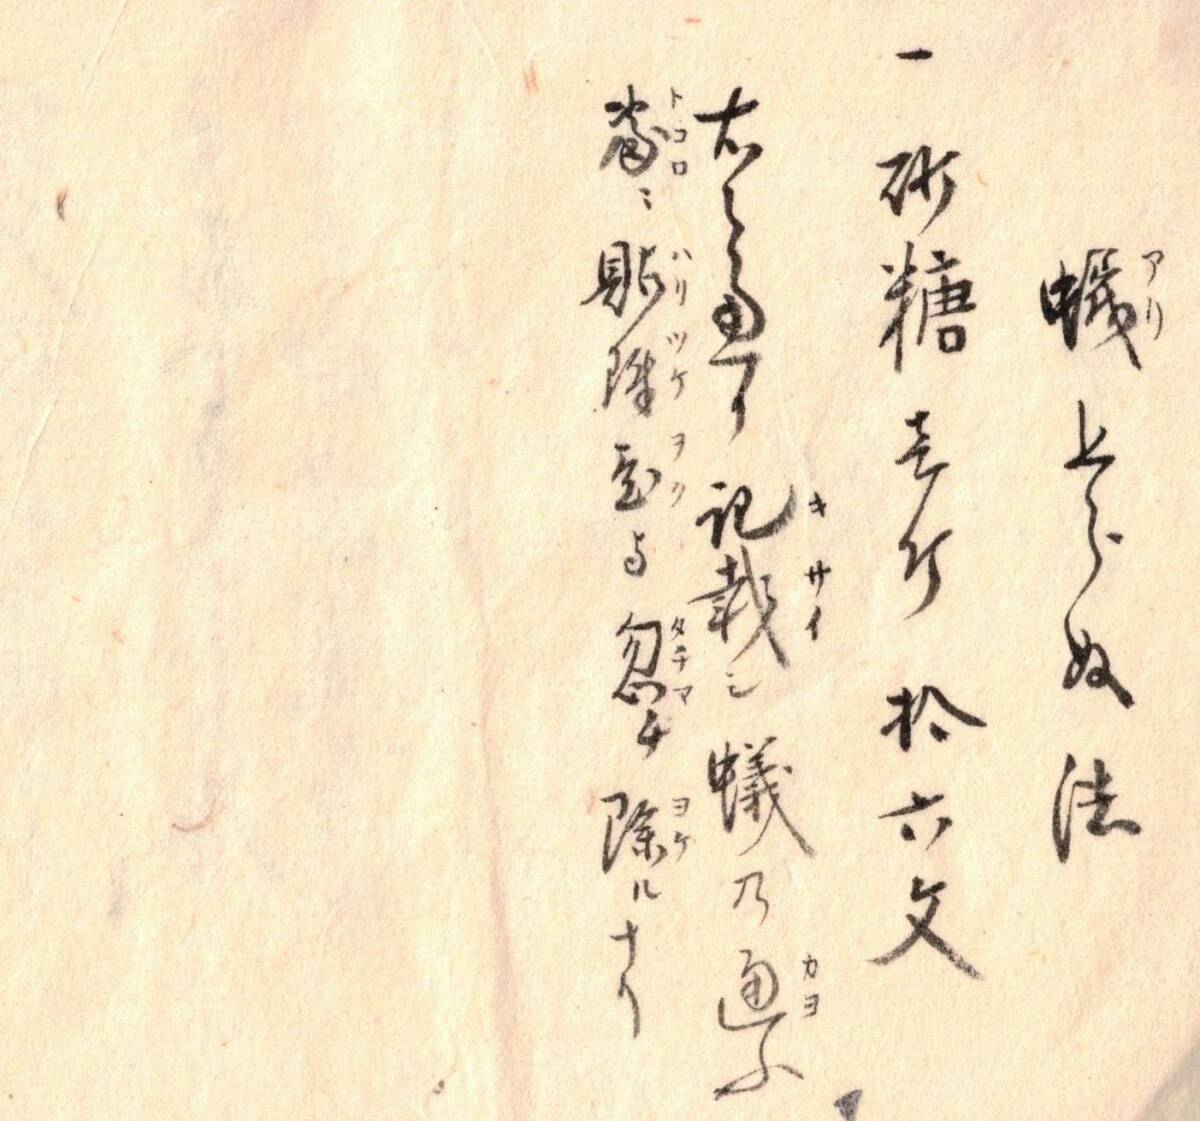 アリ
蟻上らぬ法
一砂糖壱斤拾六文
キサイ カヨ
右之通り記載シ蟻乃通ふ
トコロ ハリツケヲク タチマ ヨケ
處ニ貼附置与忽チ除ルナリ